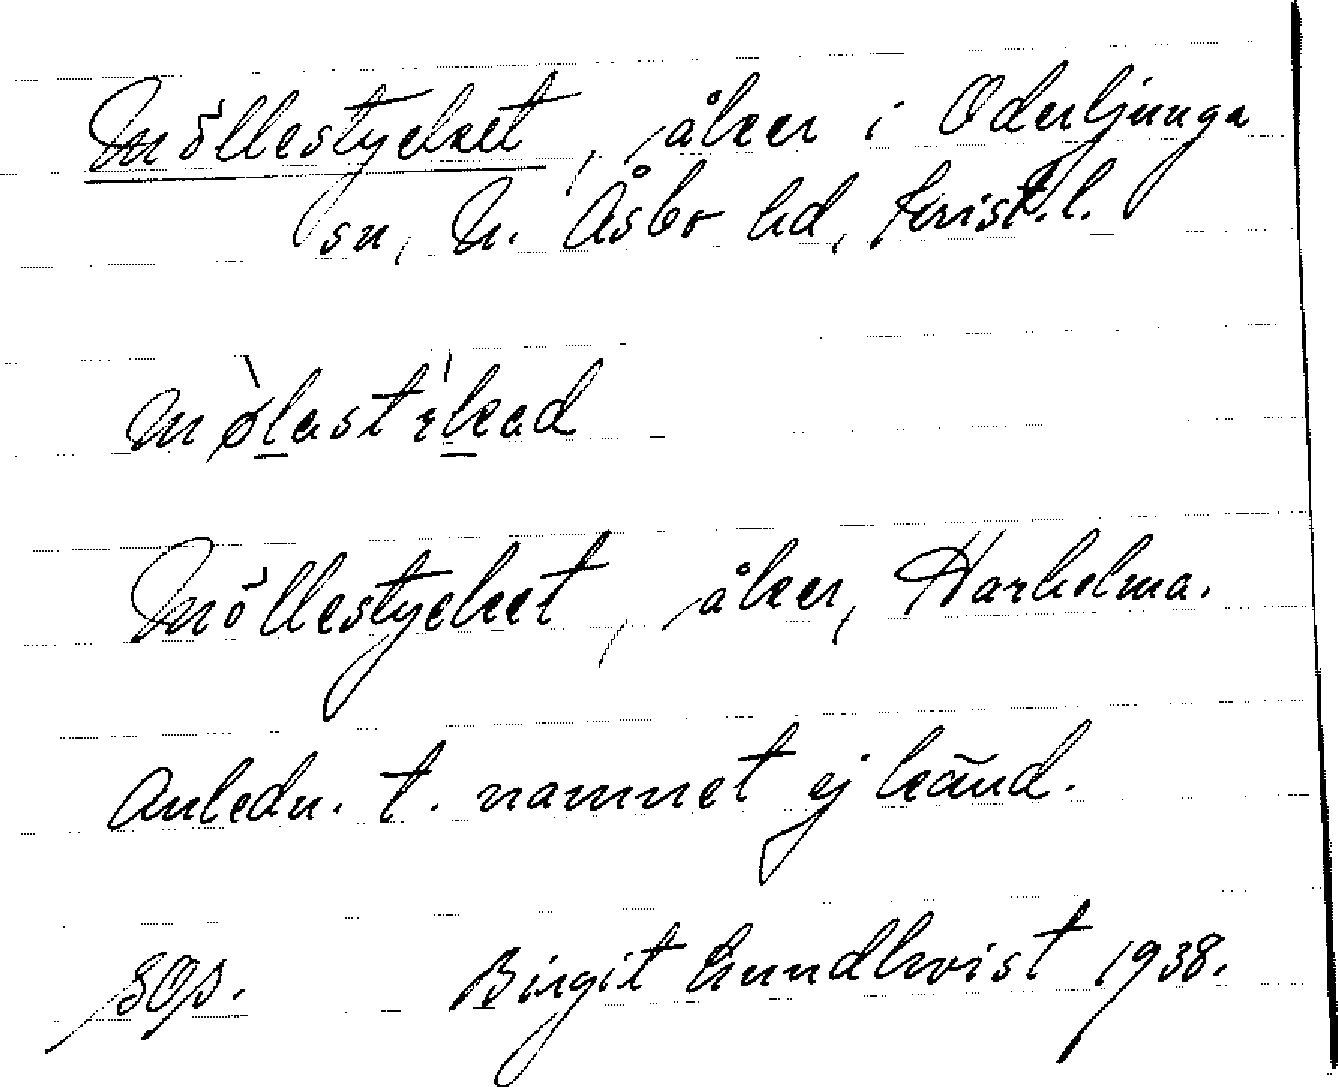 Möllestycket, åker i Oderljunga
sn, N. Åsbo hd, Krist. l.
Möllestycket, åker, Harholma.
Anledn. t. namnet ej känd.
SOS. Birgit Lundkvist 1938.